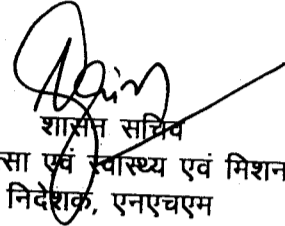 शासन सचिव
सा एवं स्वास्थ्य एवं मिशन
निदेशक, एनएचएम